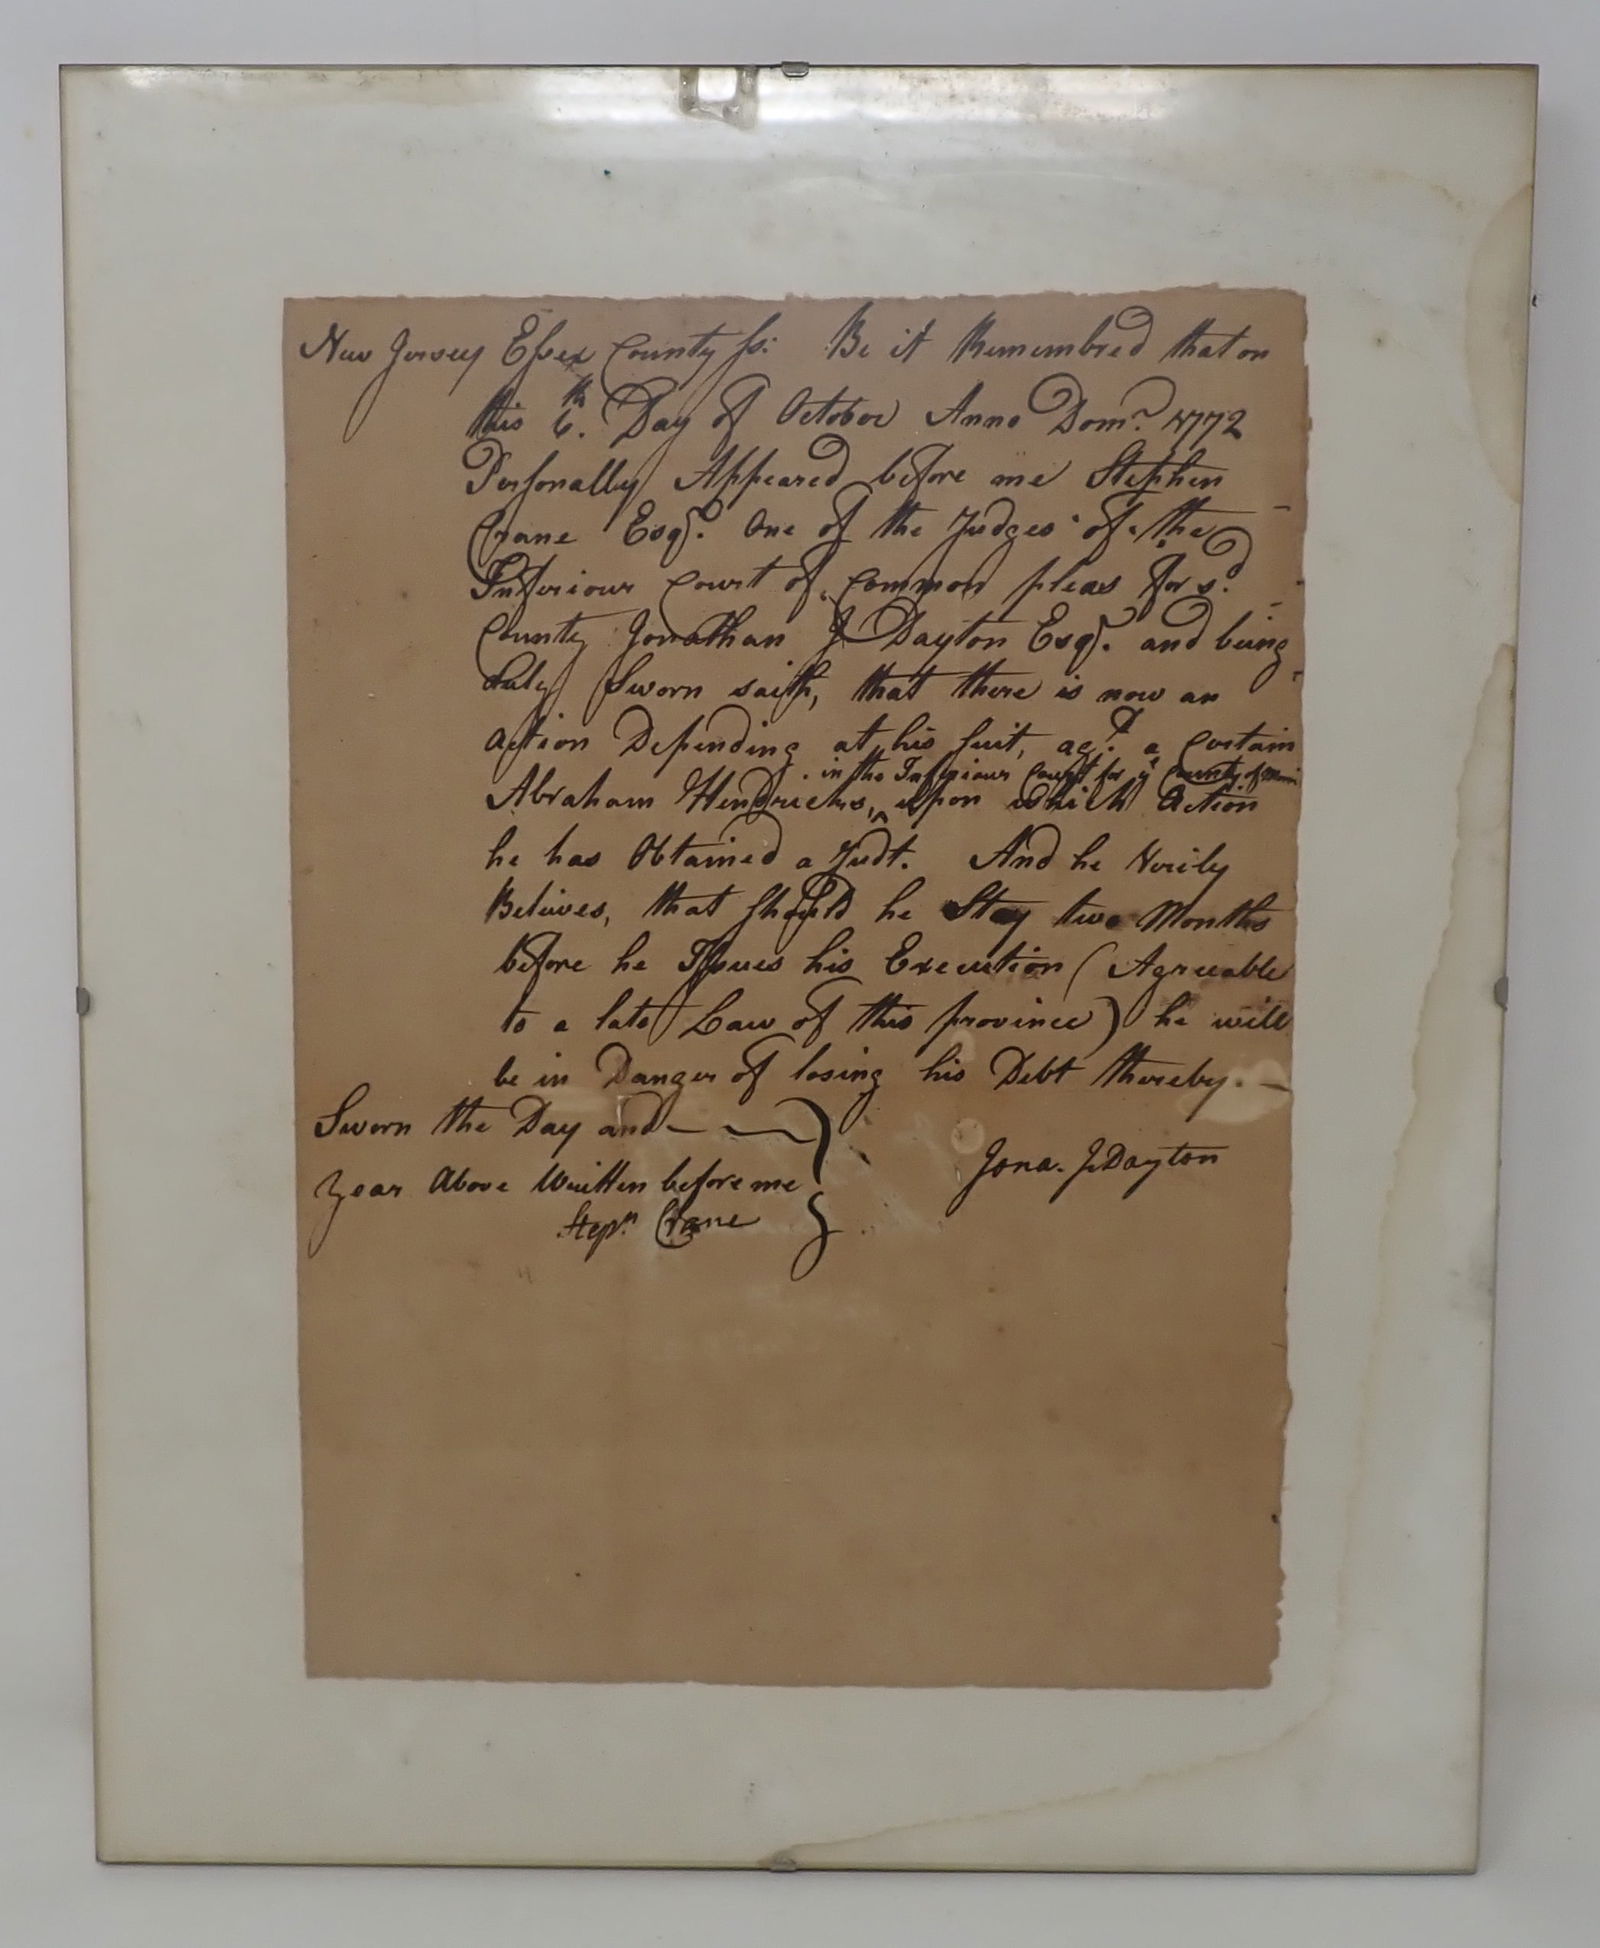 New Jersey Essex County ss: Be it Remembred that on
this 6th. Day of October Anno Domi. 1772
Personally Appeared before me Stephen
Crane Esqr. One of the Judges of the
Inferiour Court of Common pleas for sd.
County Jonathan J Dayton Esqr. and being
duly Sworn saith, that there is now an
action Depending at his suit, agt. a Certain
in the Inferiour Court for ye County of Morris
Abraham Hendricks, ^ upon which Action
he has Obtained a Judt. And he Verily
Believes, that should he Stay two Months
before he Issues his Execution (Agreeable
to a late Law of this province) he will
be in Danger of losing his Debt thereby. —
Sworn the Day and —
Year Above Written before me
Jona. J Dayton
Stepn. Crane